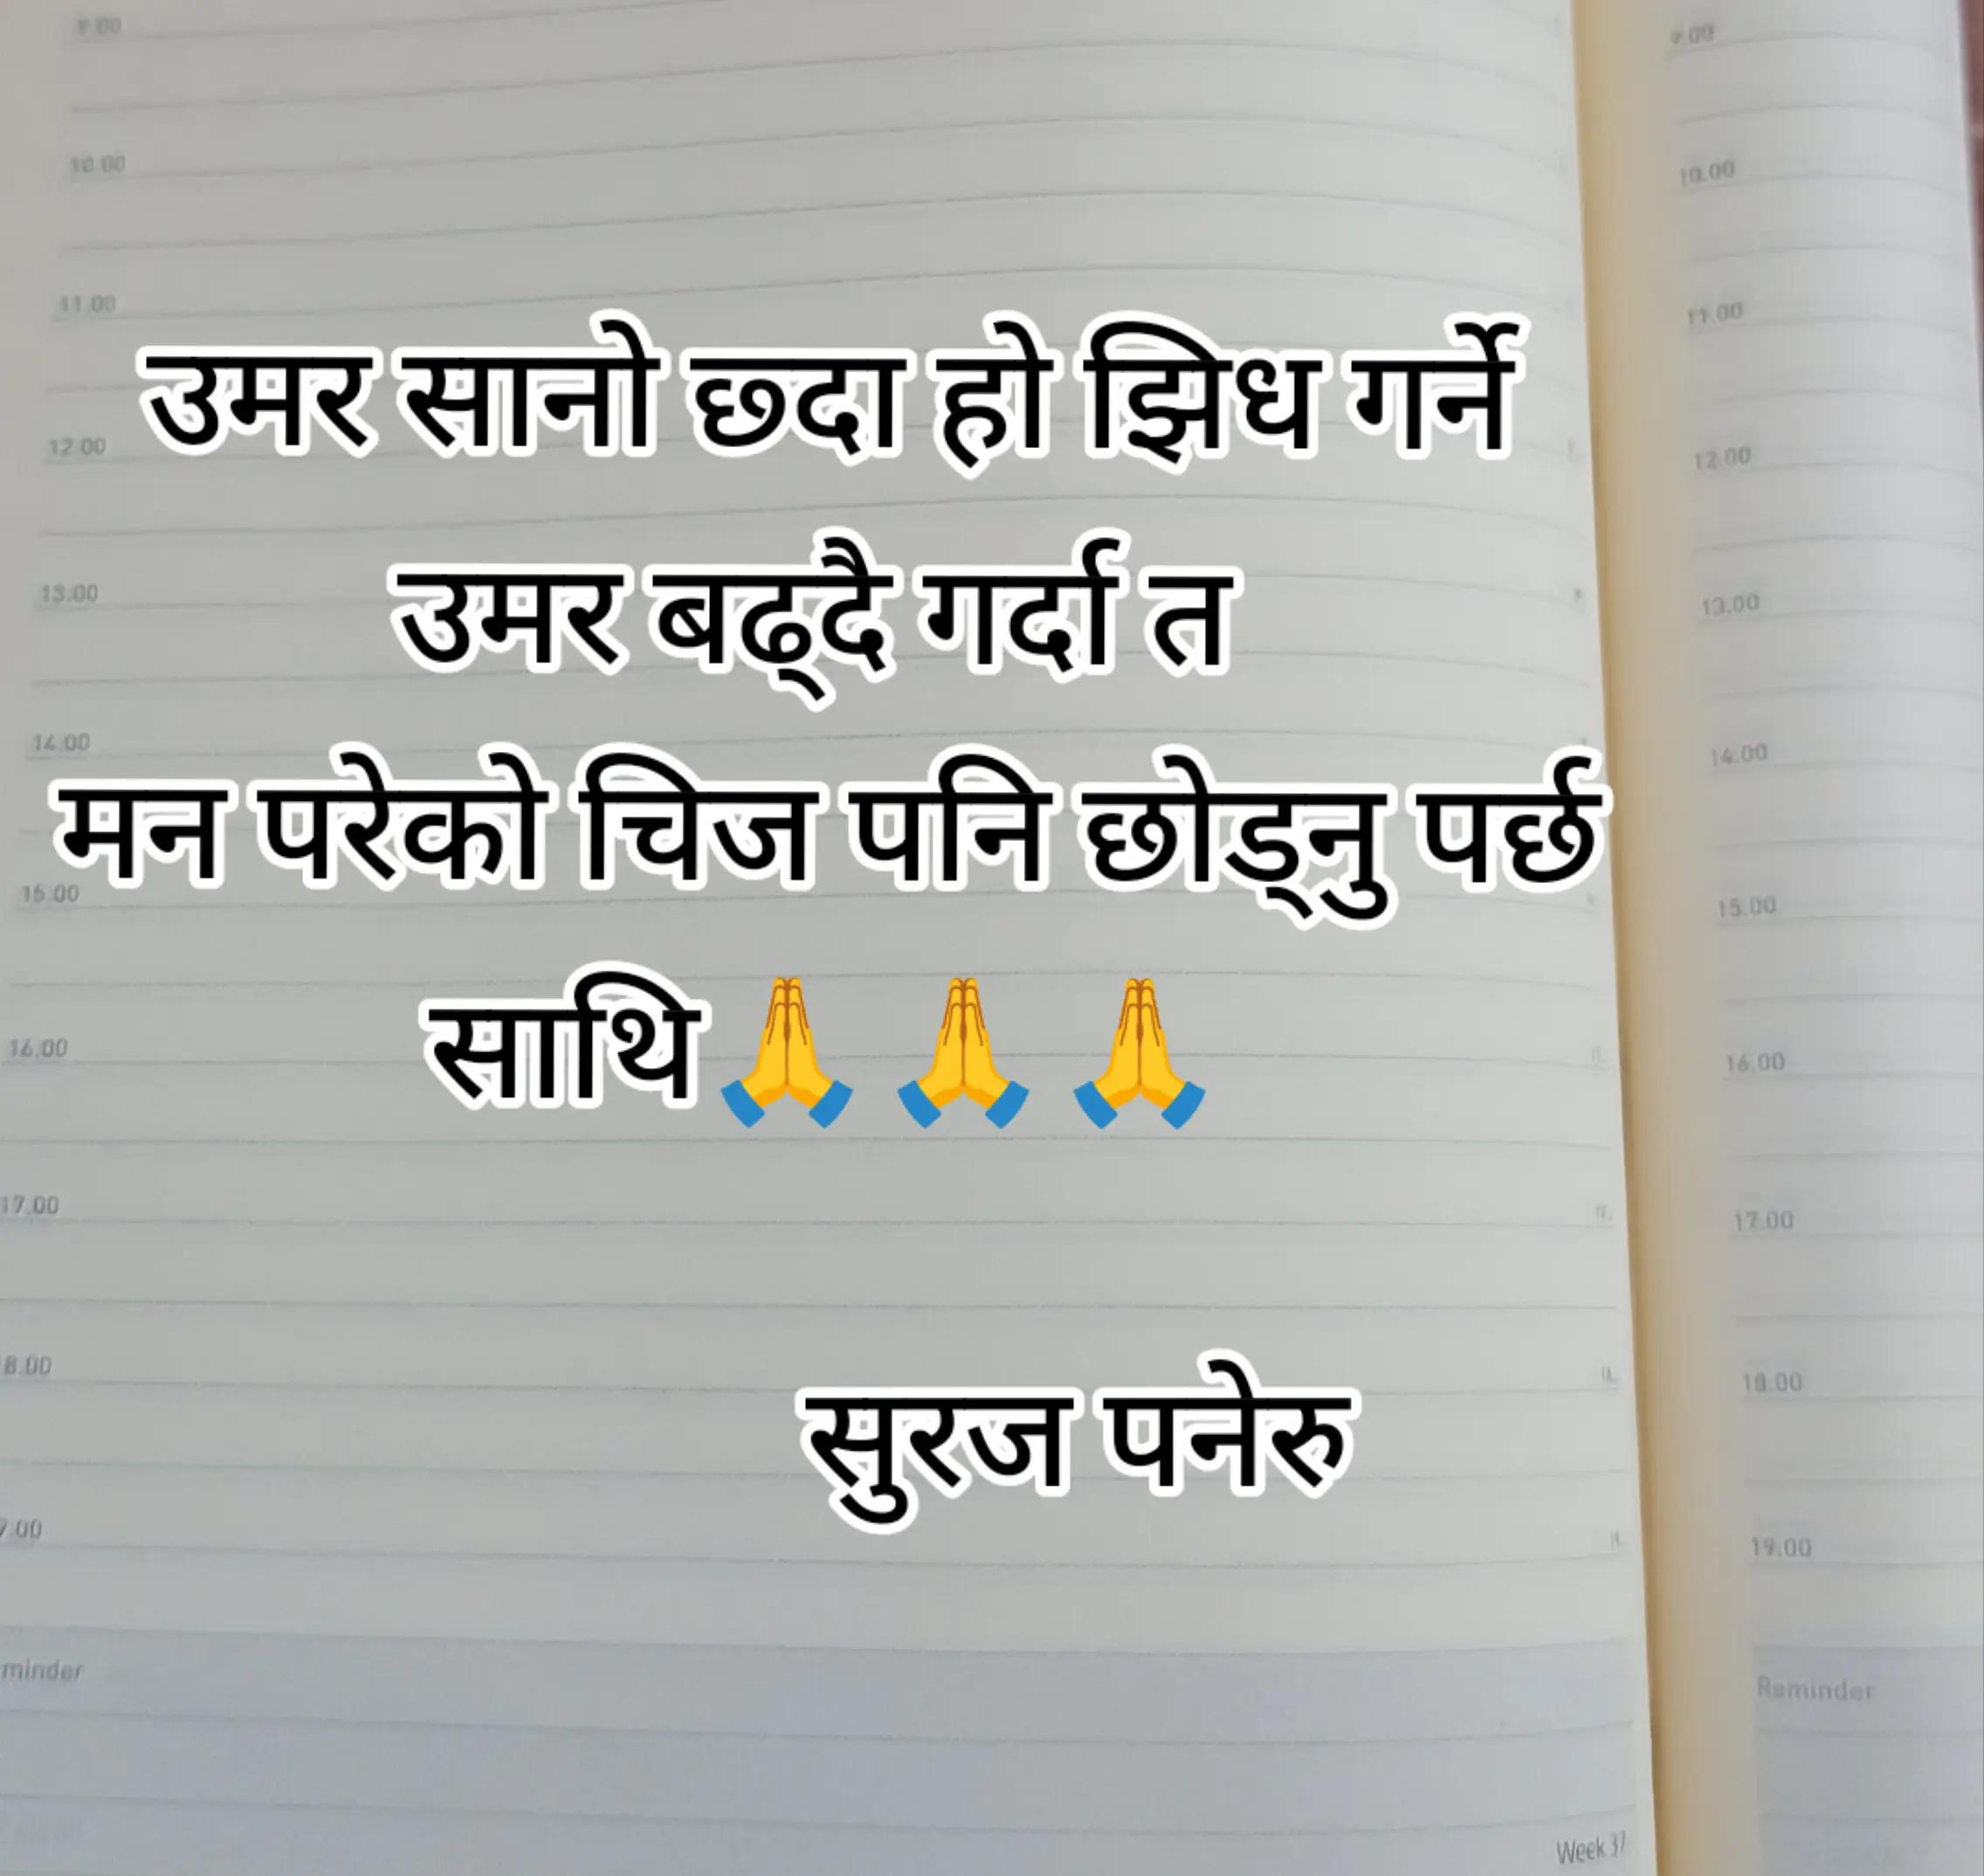 9.00
10.00
11.00
12.00
13.00
14.00
15.00
16.00
17.00
8.00
9.00
minder
उमर सानो छ्दा हो झिध गर्ने
उमर बढ्दै गर्दा त
मन परेको चिज पनि छोड्नु पर्छ
साथि🙏🙏🙏
सुरज पनेरु
Week 37
9.00
10.00
11.00
12.00
13.00
14.00
15.00
16.00
17.00
18.00
19.00
Reminder